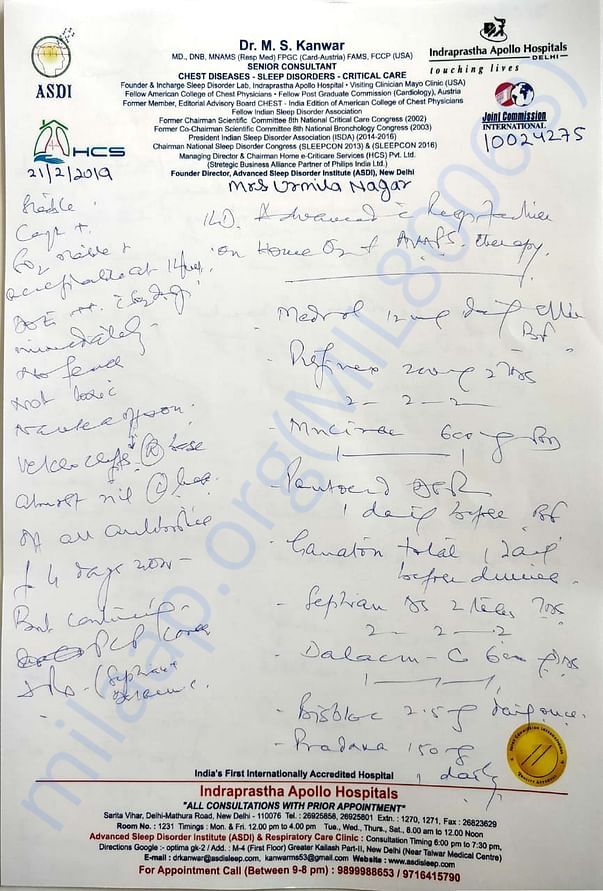 ASDI
HCS
Dr. M. S. Kanwar
MD., DNB, MNAMS (Resp Med) FPGC (Card-Austria) FAMS, FCCP (USA)
SENIOR CONSULTANT
CHEST DISEASES - SLEEP DISORDERS - CRITICAL CARE
Founder & Incharge Sleep Disorder Lab, Indraprastha Apollo Hospital • Visiting Clinician Mayo Clinic (USA)
Fellow American College of Chest Physicians • Fellow Post Graduate Commission (Cardiology), Austria
Former Member, Editorial Advisory Board CHEST - India Edition of American College of Chest Physicians
Fellow Indian Sleep Disorder Association
Former Chairman Scientific Committee 8th National Critical Care Congress (2002)
Former Co-Chairman Scientific Committee 8th National Bronchology Congress (2003)
President Indian Sleep Disorder Association (ISDA) (2014-2016)
Chairman National Sleep Disorder Congress (SLEEPCON 2013) & (SLEEPCON 2016)
Managing Director & Chairman Home e-Criticare Services (HCS) Pvt. Ltd.
(Strategic Business Alliance Partner of Philips India Ltd.)
Founder Director, Advanced Sleep Disorder Institute (ASDI), New Delhi
Indraprastha Apollo Hospitals
DELHI
touching lives
Joint Commission
INTERNATIONAL
10024275
21/2/2019
Mrs Urmila Nagar
Stable
acceptable at
immediately
No fever
Not toxic
Nausea off on
Velcro (R) base
almost nil (L) base
off all
4 days now
But continuing
PCP cover
(Septran +
ILD. Advanced
on Home O2 + AVAPS therapy.
- Medrol 12 mg daily after BF
- Pirfinex 200mg 2 TDS
2 - 2 - 2
- Mucinac 600 mg BD
1 1
- Pantocid DSR
1 daily before BF
- Ganaton total 1 daily
before dinner.
- Septran DS 2 tabs TDS
2 - 2 - 2
- Dalacin-C 600 TDS
1 - 1 - 1
- Bisbloc 2.5 mg daily once.
- Pradaxa 150 mg
1 daily
milaap.org(MIL80068)
India's First Internationally Accredited Hospital
Indraprastha Apollo Hospitals
"ALL CONSULTATIONS WITH PRIOR APPOINTMENT"
Sarita Vihar, Delhi-Mathura Road, New Delhi - 110076 Tel. : 26925858, 26925801 Extn. : 1270, 1271, Fax : 26823629
Room No. : 1231 Timings : Mon. & Fri. 12.00 pm to 4.00 pm Tue., Wed., Thurs., Sat., 8.00 am to 12.00 Noon
Advanced Sleep Disorder Institute (ASDI) & Respiratory Care Clinic : Consultation Timing 6:00 pm to 7:30 pm,
Directions Google :- optima gk-2 / Add. : M-4 (First Floor) Greater Kailash Part-II, New Delhi (Near Talwar Medical Centre)
E-mail : drkanwar@asdisleep.com, kanwarms53@gmail.com Website : www.asdisleep.com
For Appointment Call (Between 9-8 pm) : 9899988653 / 9716415790